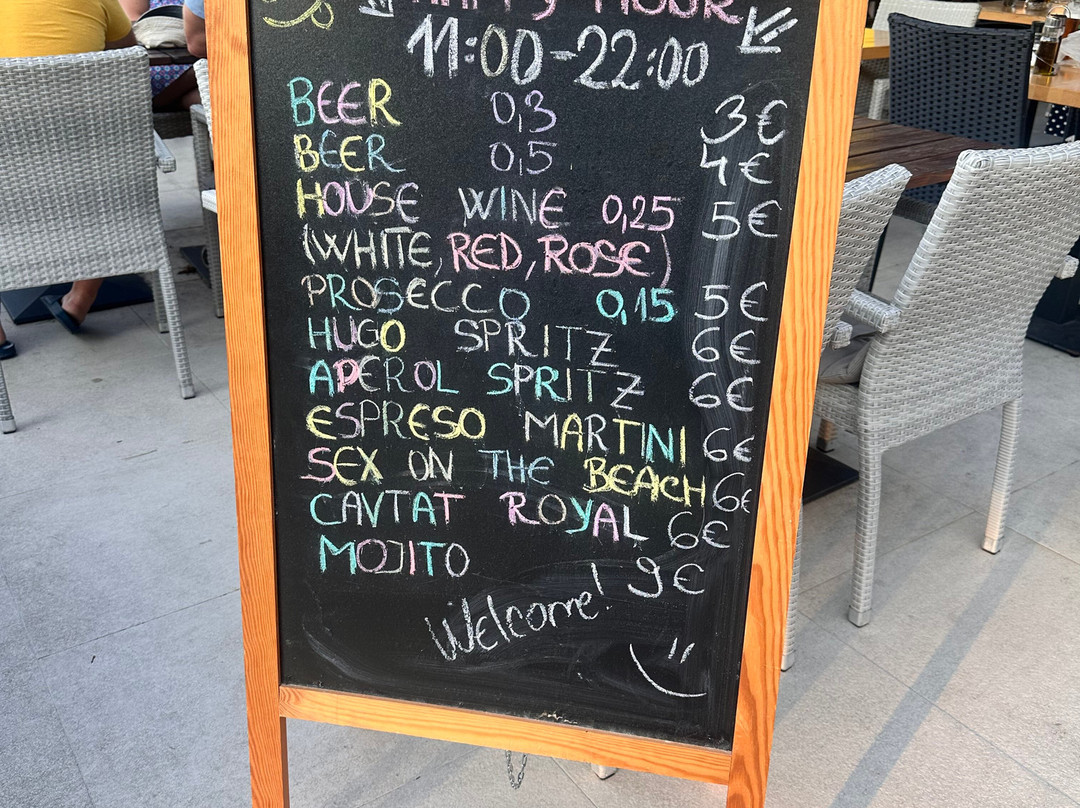 HAPPY HOUR
11:00-22:00
BEER 0,3 3€
BEER 0,5 4€
HOUSE WINE 0,25 5€
(WHITE, RED, ROSE)
PROSECCO 0,15 5€
HUGO SPRITZ 6€
APEROL SPRITZ 6€
ESPRESO MARTINI 6€
SEX ON THE BEACH 6€
CAVTAT ROYAL 6€
MOJITO 9€
Welcome!